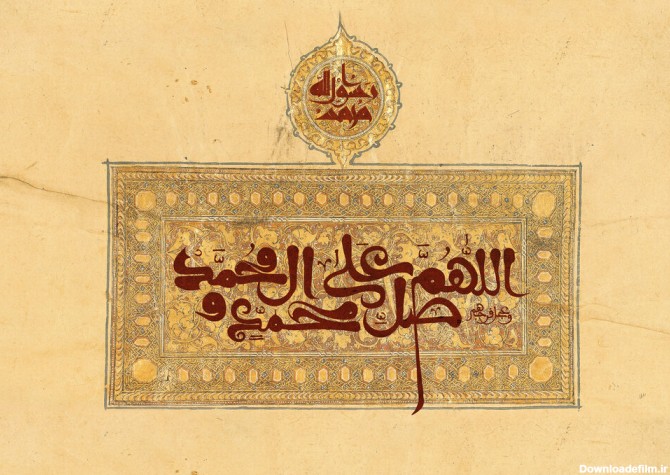 یا
رسول الله
محمد
اللّهُمَّ صَلِّ عَلی مُحمّدٍ و ال مُحمَّد
وعجل فرجهم
Downloadefilm.ir